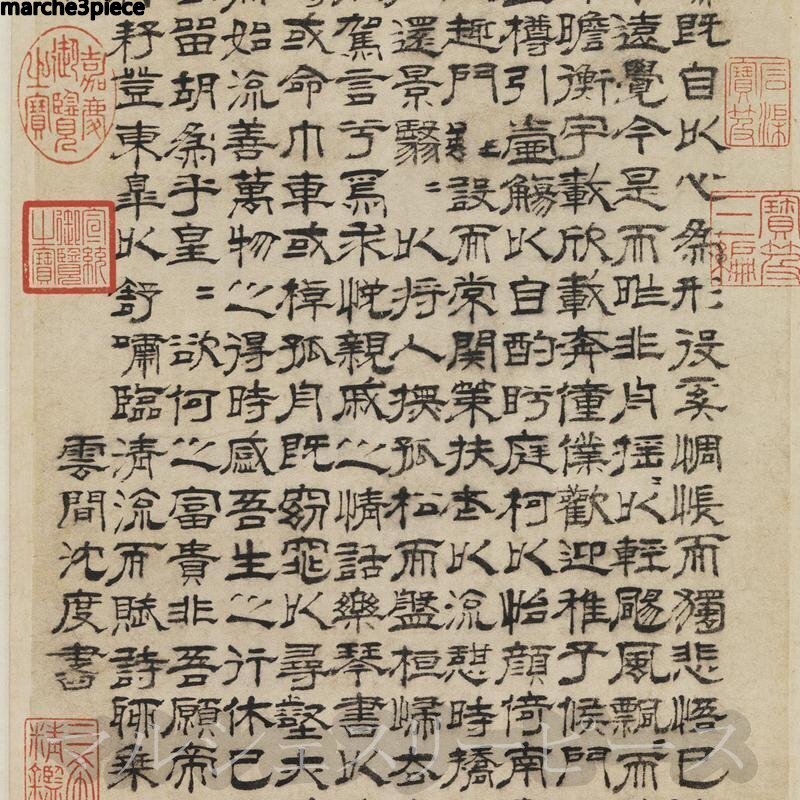 marche3piece
既自以心爲形役奚惆悵而獨悲悟已
遠覺今是而昨非舟搖〻以輕颺風飄而
瞻衡宇載欣載奔僮僕歡迎稚子候門
樽引壺觴以自酌眄庭柯以怡顏倚南
趣門設而常關策扶老以流憩時矯
還景翳〻以將入撫孤松而盤桓歸去
駕言兮焉求悅親戚之情話樂琴書以
或命巾車或棹孤舟既窈窕以尋壑
始流善萬物之得時感吾生之行休已
留胡爲乎皇〻欲何之富貴非吾願帝
耔登東皋以舒嘯臨清流而賦詩聊乘
雲間沈度書
石渠寶笈
寶笈三編
嘉慶御覽之寶
宣統御覽之寶
精鑑
マルシェスリーピース